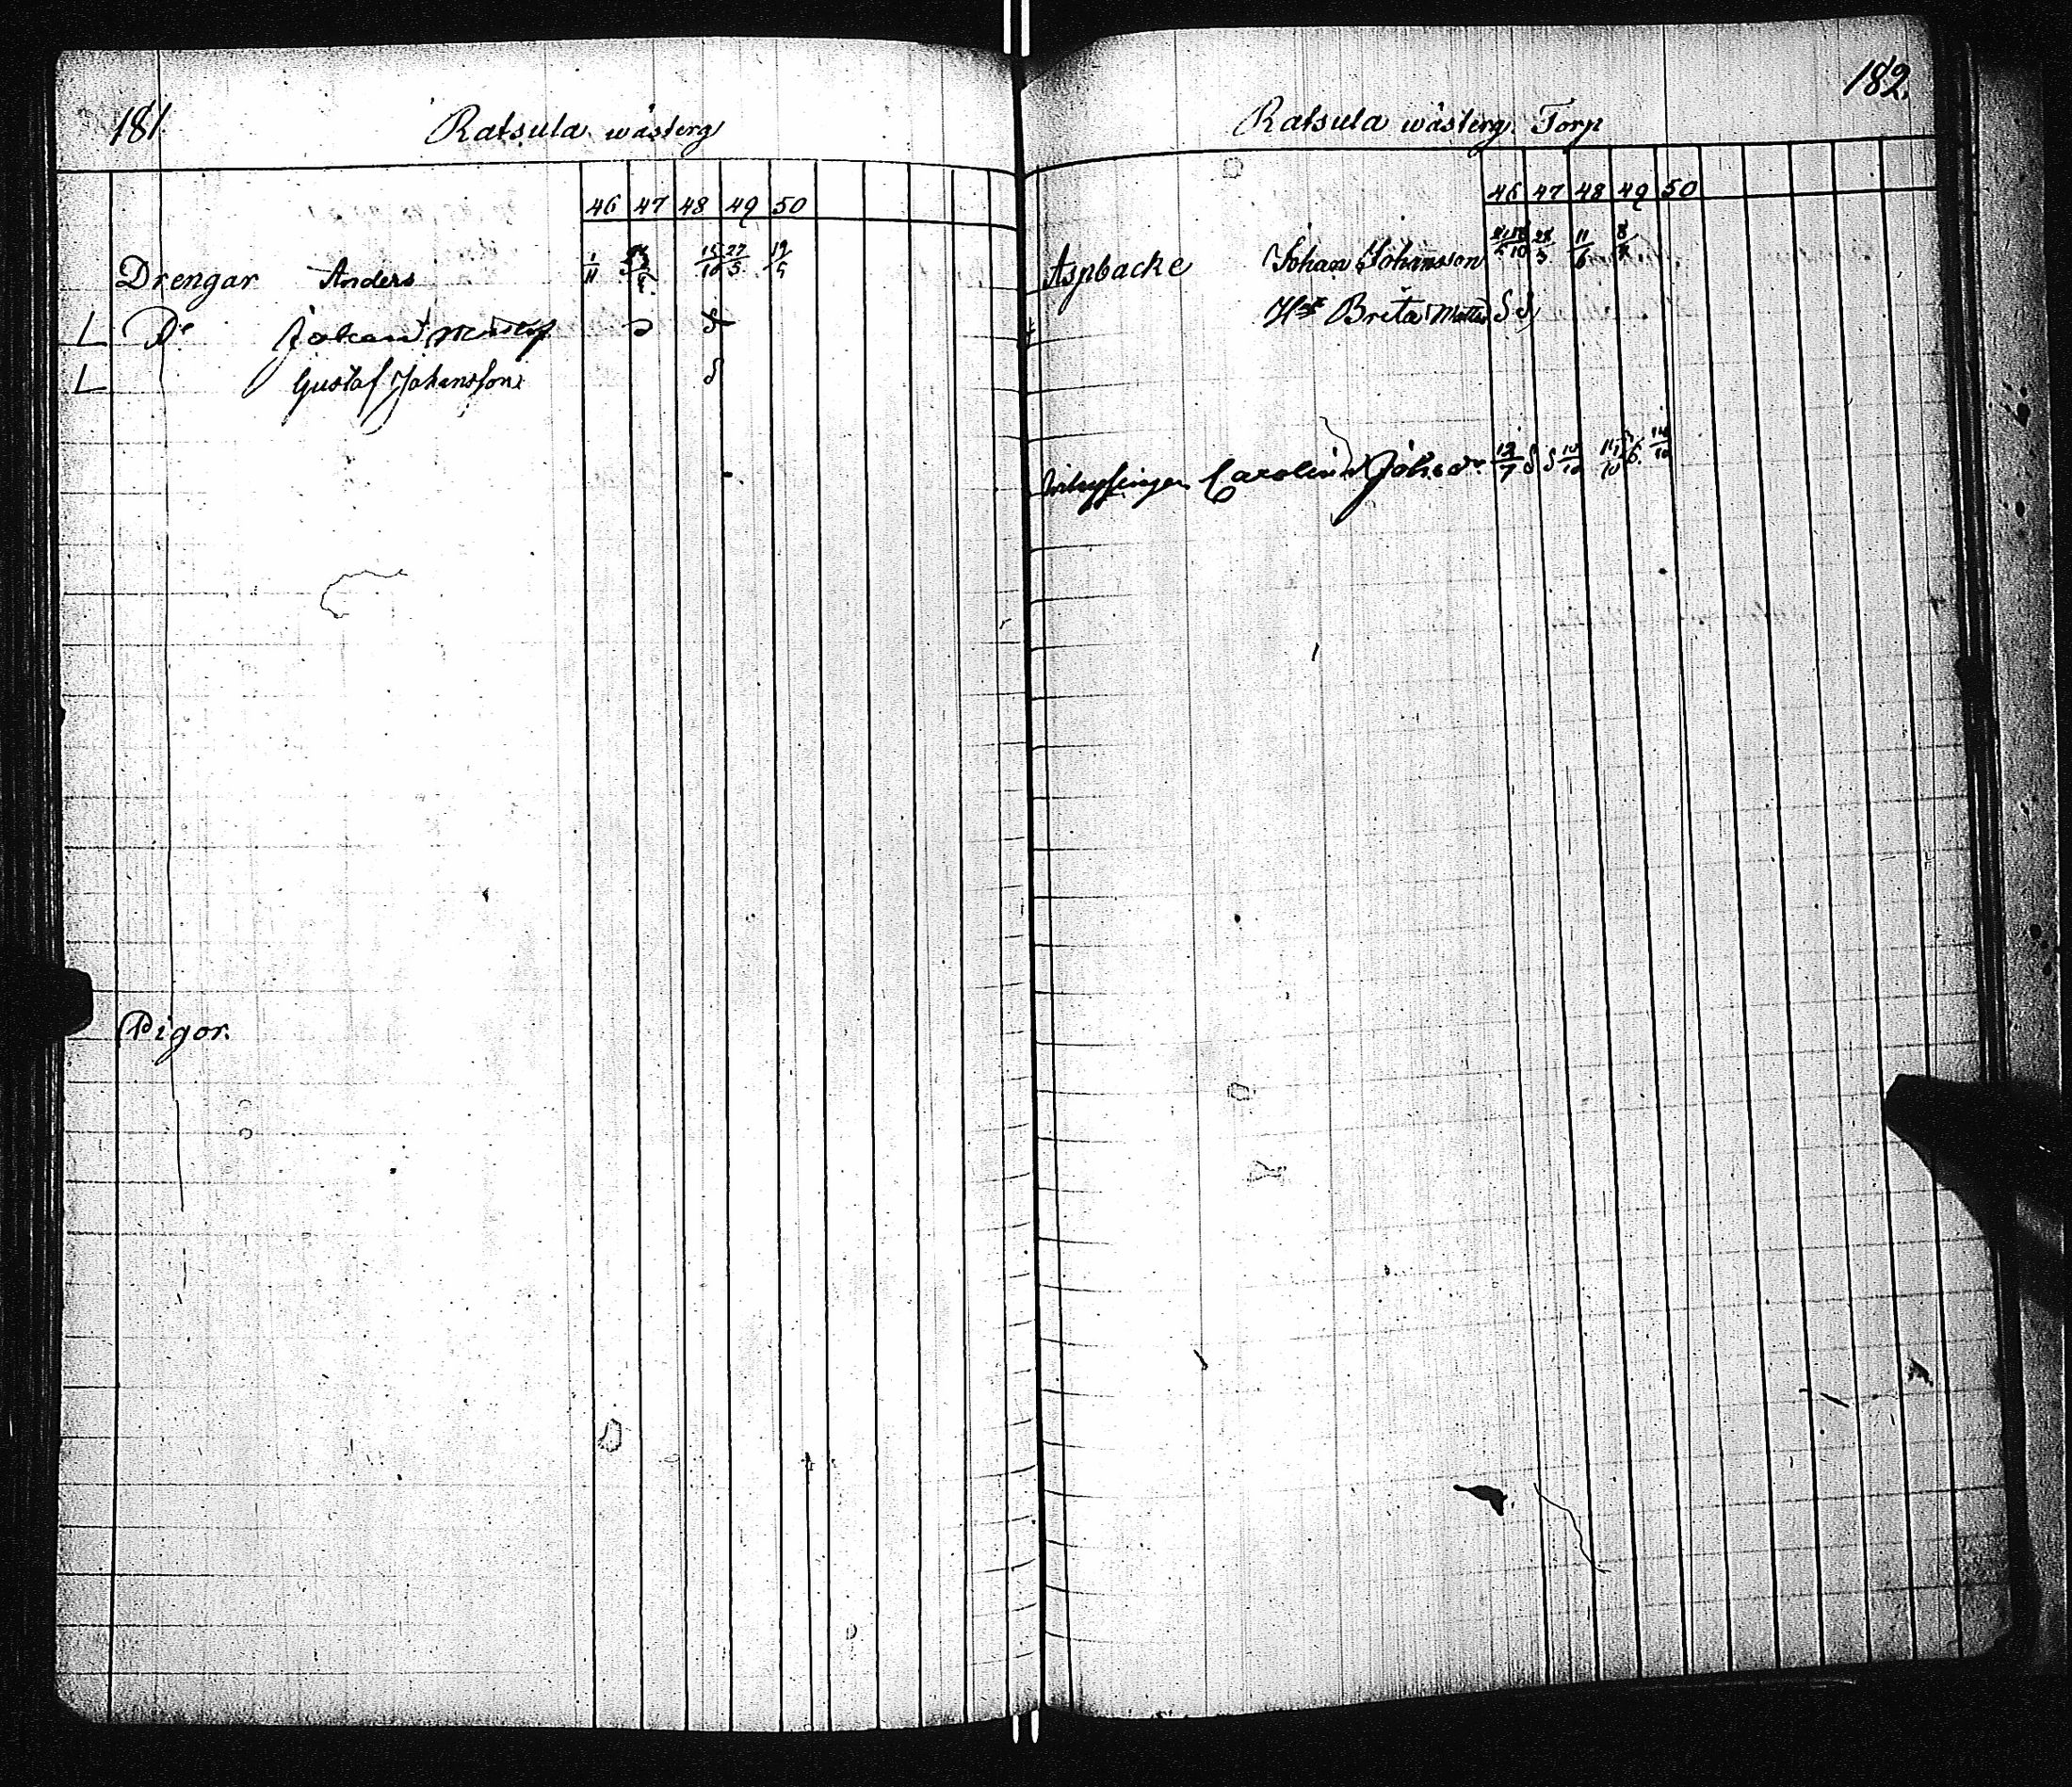 181.
Ratsula wästerg
46 47 48 49 50
Drengar Anders 1/11 15/10 27/5 19/5
L Do Johan
L Gustaf Johansson
Pigor.
182.
Ratsula wästerg. Torp
46 47 48 49 50
Aspbacke Johan Johansson 28/3 11/6 8/7
Brita Matts
Carolina Johsdr 12/7 10/10 11/10 14/10